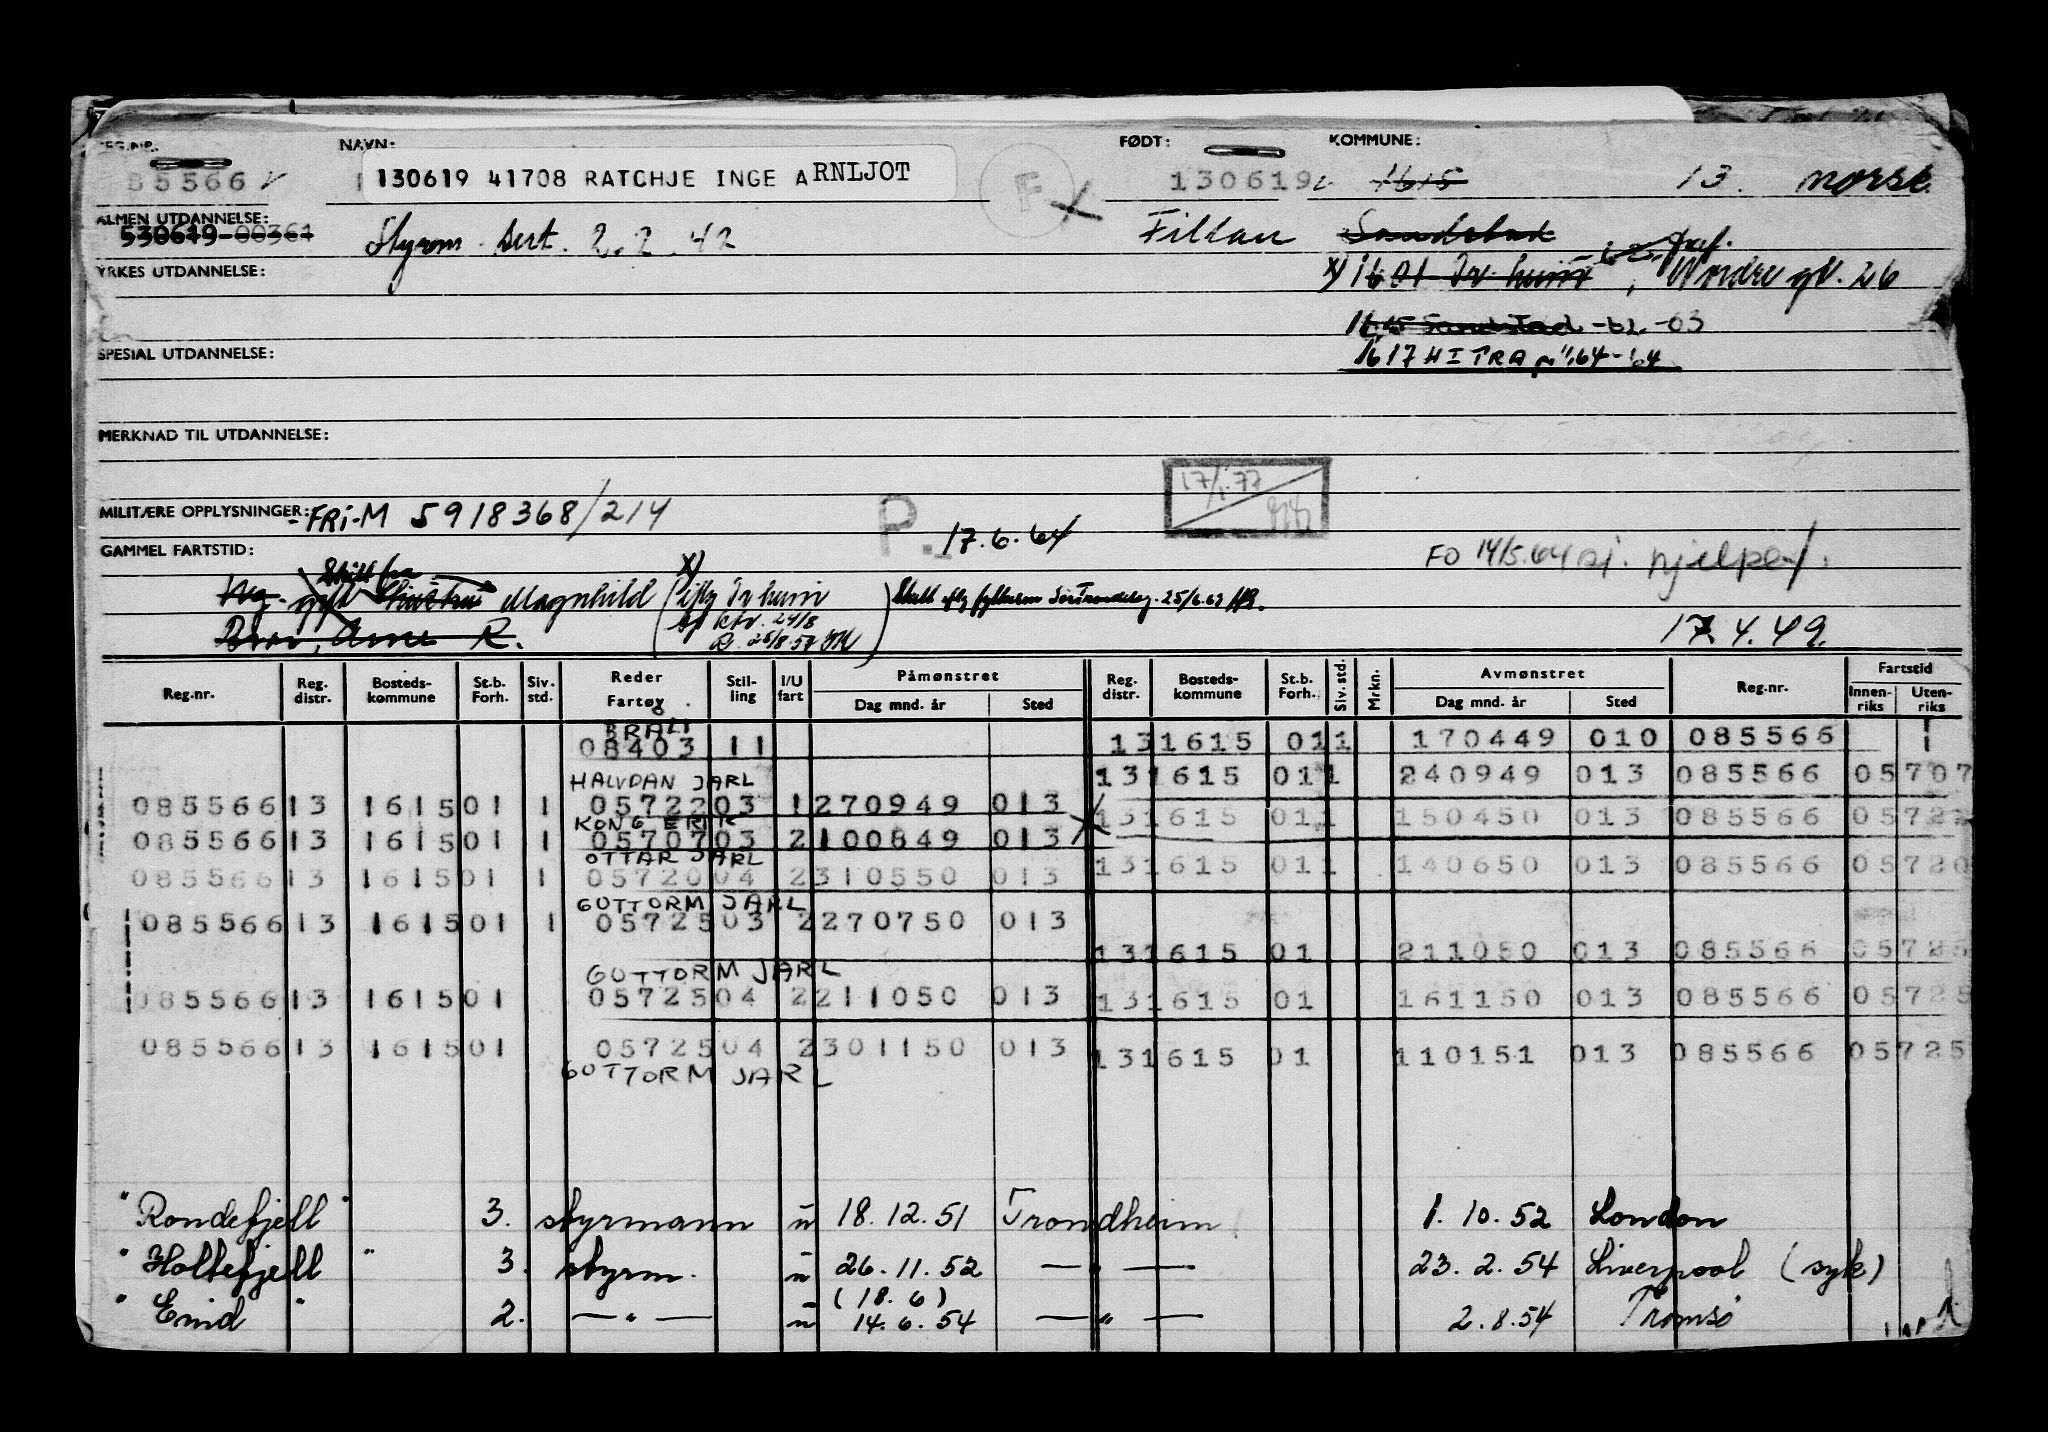 REG.NR. NAVN: FØDT: KOMMUNE:
85566 130619 41708 RATCHJE INGE ARNLJOT F 130619 1615 13. norsk
ALMEN UTDANNELSE:
530619-00361 Styrm. sert. 2.2.42 Fillan Sandstad
YRKES UTDANNELSE: x) 1601 Tr.heim, Nordre gt. 26
1615 Sandstad -62-63
SPESIAL UTDANNELSE: 1617 HITRA 64-64
MERKNAD TIL UTDANNELSE:
17/1.77
MILITÆRE OPPLYSNINGER: -FRI-M 5918368/214 P. 17.6.64
GAMMEL FARTSTID: FO 14/5.64 hjelpe
Skilt fra x)
gift Magnhild (iflg Tr heim Skatt iflg fylkesm Sør Trøndelag. 25/6.63
24/8
R. 17.4.49
Reg.nr. Reg. distr. Bosteds-kommune St.b. Forh. Siv. std. Reder Fartøy Stil-ling I/U fart Påmønstret Dag mnd. år Sted Reg. distr. Bosteds-kommune St.b. Forh. Siv. std. Mrkn. Avmønstret Dag mnd. år Sted Reg.nr. Fartstid Innen-riks Uten-riks
BRALI
08403 11 13 1615 01 1 170449 010 085566
HALVDAN JARL 13 1615 01 1 240949 013 085566 05707
085566 13 1615 01 1 05722 03 1 270949 013
KONG ERIK 13 1615 01 1 150450 013 085566 05722
085566 13 1615 01 1 05707 03 2 100849 013
OTTAR JARL 13 1615 01 1 140650 013 085566 05720
085566 13 1615 01 1 05720 04 2 310550 013
GUTTORM JARL
085566 13 1615 01 1 05725 03 2 270750 013
13 1615 01 211050 013 085566 05725
GUTTORM JARL
085566 13 1615 01 05725 04 2 211050 013 13 1615 01 161150 013 085566 05725
085566 13 1615 01 05725 04 2 301150 013 13 1615 01 110151 013 085566 05725
GUTTORM JARL
"Rondefjell" 3. styrmann u 18.12.51 Trondheim 1.10.52 London
"Holtefjell" 3. styrm. u 26.11.52 — " — 23.2.54 Liverpool (syk)
(18.6)
" Eind " 2. — " — u 14.6.54 — " — 2.8.54 Tromsø